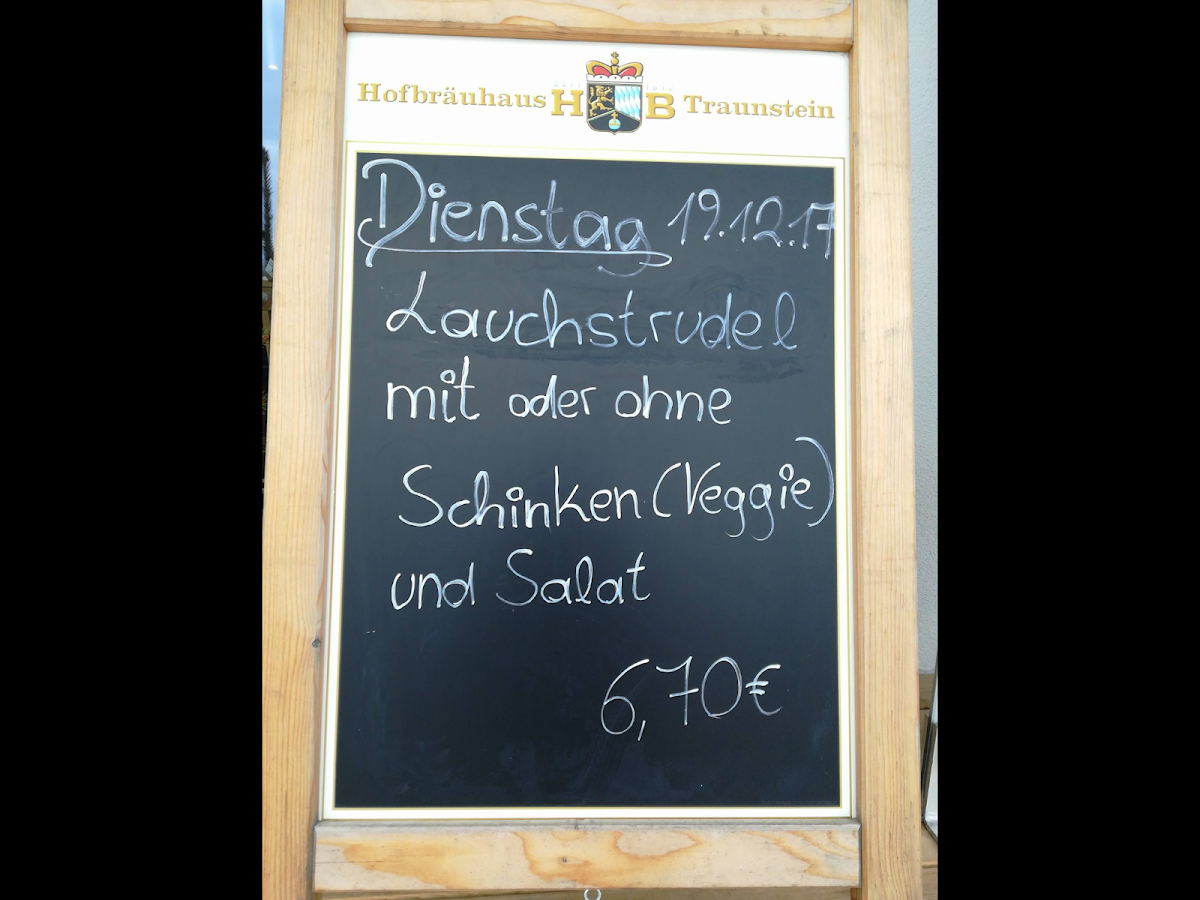 Hofbräuhaus HB Traunstein
Dienstag 19.12.17
Lauchstrudel
mit oder ohne
Schinken (Veggie)
und Salat
6,70€